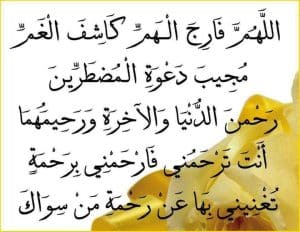 اللَّهُمَّ فَارِجَ الْـهَمِّ كَاشِفَ الْغَمِّ
مُجِيبَ دَعْوَةِ الْـمُضْطَرِّينَ
رَحْمٰنَ الدُّنْيَا وَالْآخِرَةِ وَرَحِيمَهُمَا
أَنْتَ تَرْحَمُنِي فَارْحَمْنِي بِرَحْمَةٍ
تُغْنِينِي بِهَا عَنْ رَحْمَةِ مَنْ سِوَاكَ